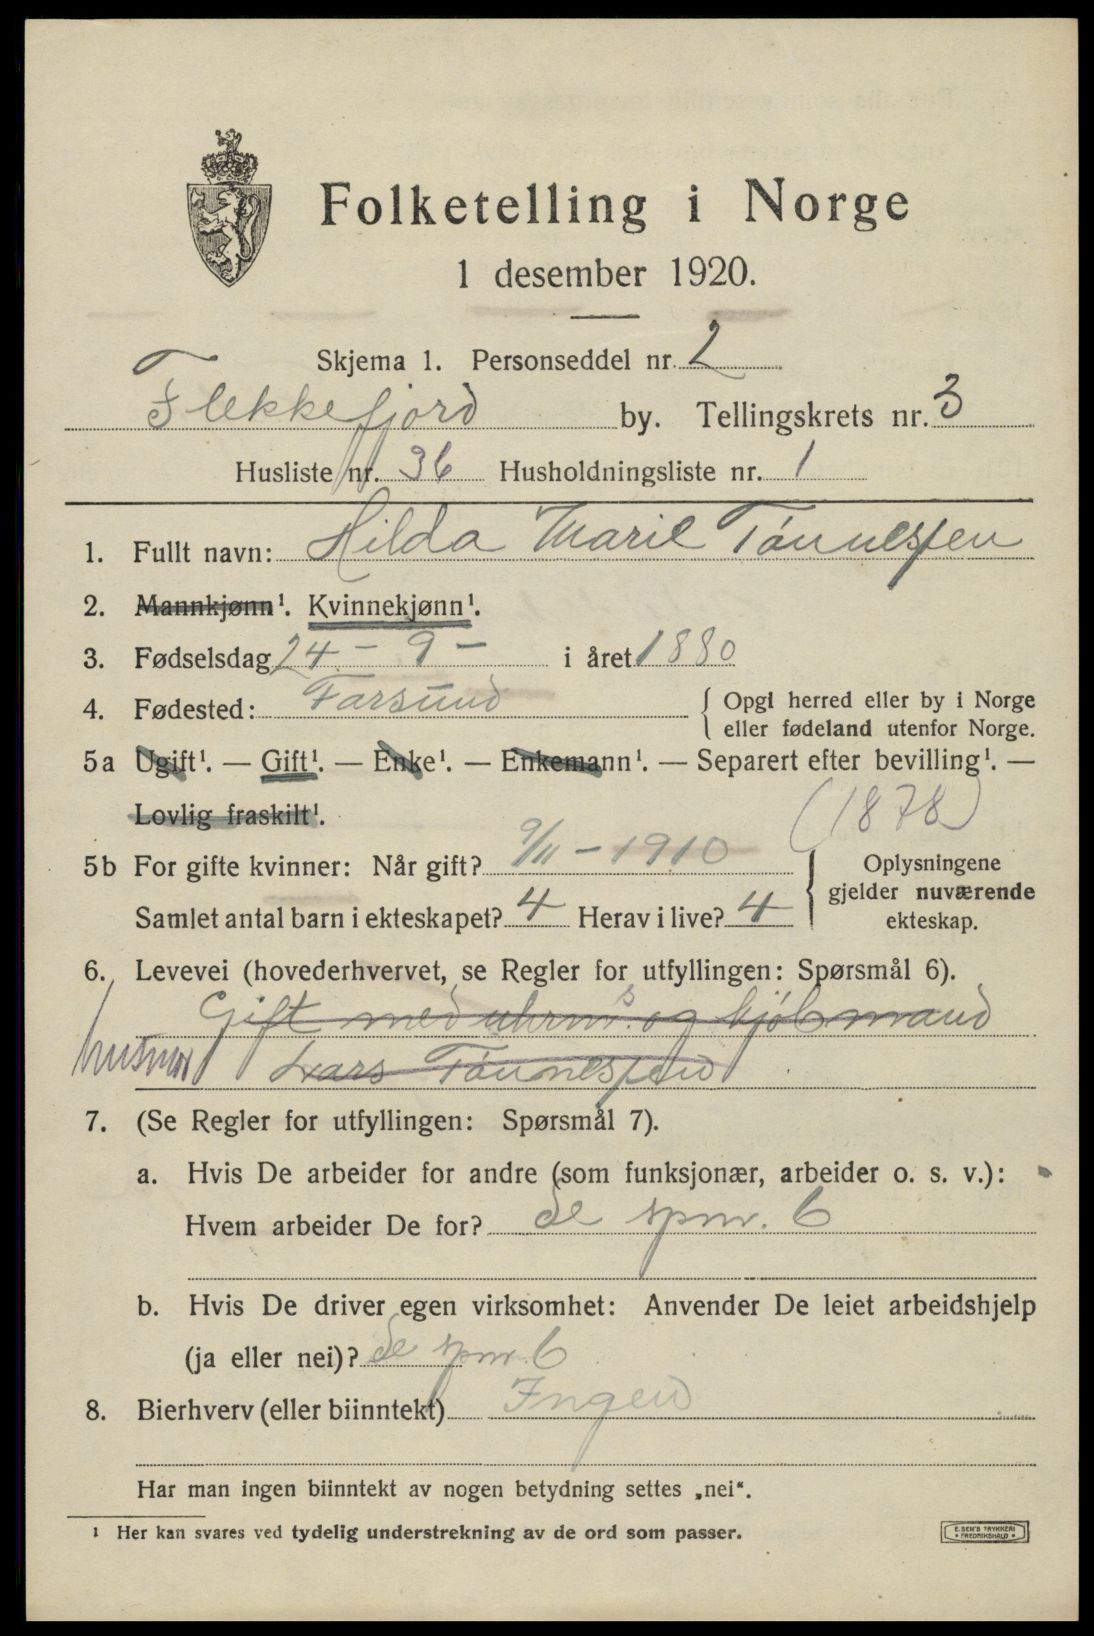 Folketelling i Norge
1 desember 1920.
Skjema 1. Personseddel nr. 2
Flekkefjord by. Tellingskrets nr. 3
Husliste nr. 36 Husholdningsliste nr. 1
1. Fullt navn: Hilda Marie Tønnessen
2. Mannkjønn¹. Kvinnekjønn¹.
3. Fødselsdag 24 - 9 - i året 1880
4. Fødested: Farsund { Opgi herred eller by i Norge
eller fødeland utenfor Norge.
5a Ugift¹. — Gift¹. — Enke¹. — Enkemann¹. — Separert efter bevilling¹. —
Lovlig fraskilt¹.
(1878)
5b For gifte kvinner: Når gift? 9/11 - 1910
Samlet antal barn i ekteskapet? 4 Herav i live? 4
} Oplysningene
gjelder nuværende
ekteskap.
6. Levevei (hovederhvervet, se Regler for utfyllingen: Spørsmål 6).
Gift med uhrm. og kjøbmand
husmor Lars Tønnessen
7. (Se Regler for utfyllingen: Spørsmål 7).
a. Hvis De arbeider for andre (som funksjonær, arbeider o. s. v.):
Hvem arbeider De for? Se spm. 6
b. Hvis De driver egen virksomhet: Anvender De leiet arbeidshjelp
(ja eller nei)? Se spm. 6
8. Bierhverv (eller biinntekt) Ingen
Har man ingen biinntekt av nogen betydning settes „nei“.
¹ Her kan svares ved tydelig understrekning av de ord som passer.
E. SEM'S TRYKKERI
• FREDRIKSHALD •